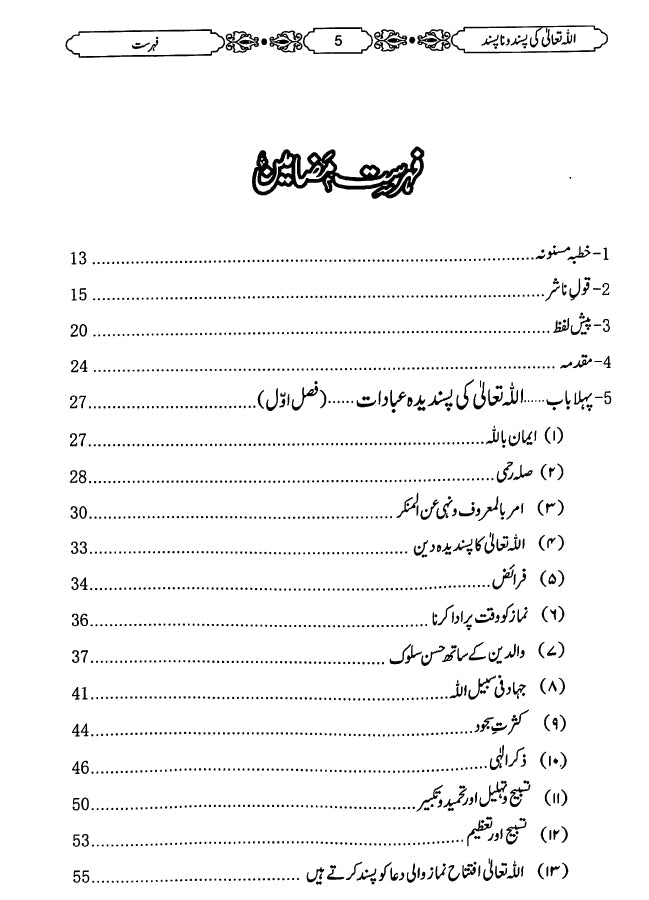 اللہ تعالیٰ کی پسند و ناپسند 5 فہرست
فہرست مضامین
1- خطبہ مسنونہ ........ 13
2- قولِ ناشر ........ 15
3- پیش لفظ ........ 20
4- مقدمہ ........ 24
5- پہلا باب ...... اللہ تعالیٰ کی پسندیدہ عبادات ...... (فصل اوّل) ........ 27
(۱) ایمان باللہ ........ 27
(۲) صلہ رحمی ........ 28
(۳) امر بالمعروف ونہی عن المنکر ........ 30
(۴) اللہ تعالیٰ کا پسندیدہ دین ........ 33
(۵) فرائض ........ 34
(۶) نماز کو وقت پر ادا کرنا ........ 36
(۷) والدین کے ساتھ حسن سلوک ........ 37
(۸) جہاد فی سبیل اللہ ........ 41
(۹) کثرتِ سجود ........ 44
(۱۰) ذکر الٰہی ........ 46
(۱۱) تسبیح و تہلیل اور تحمید و تکبیر ........ 50
(۱۲) تسبیح اور تعظیم ........ 53
(۱۳) اللہ تعالیٰ افتتاح نماز والی دعا کو پسند کرتے ہیں ........ 55